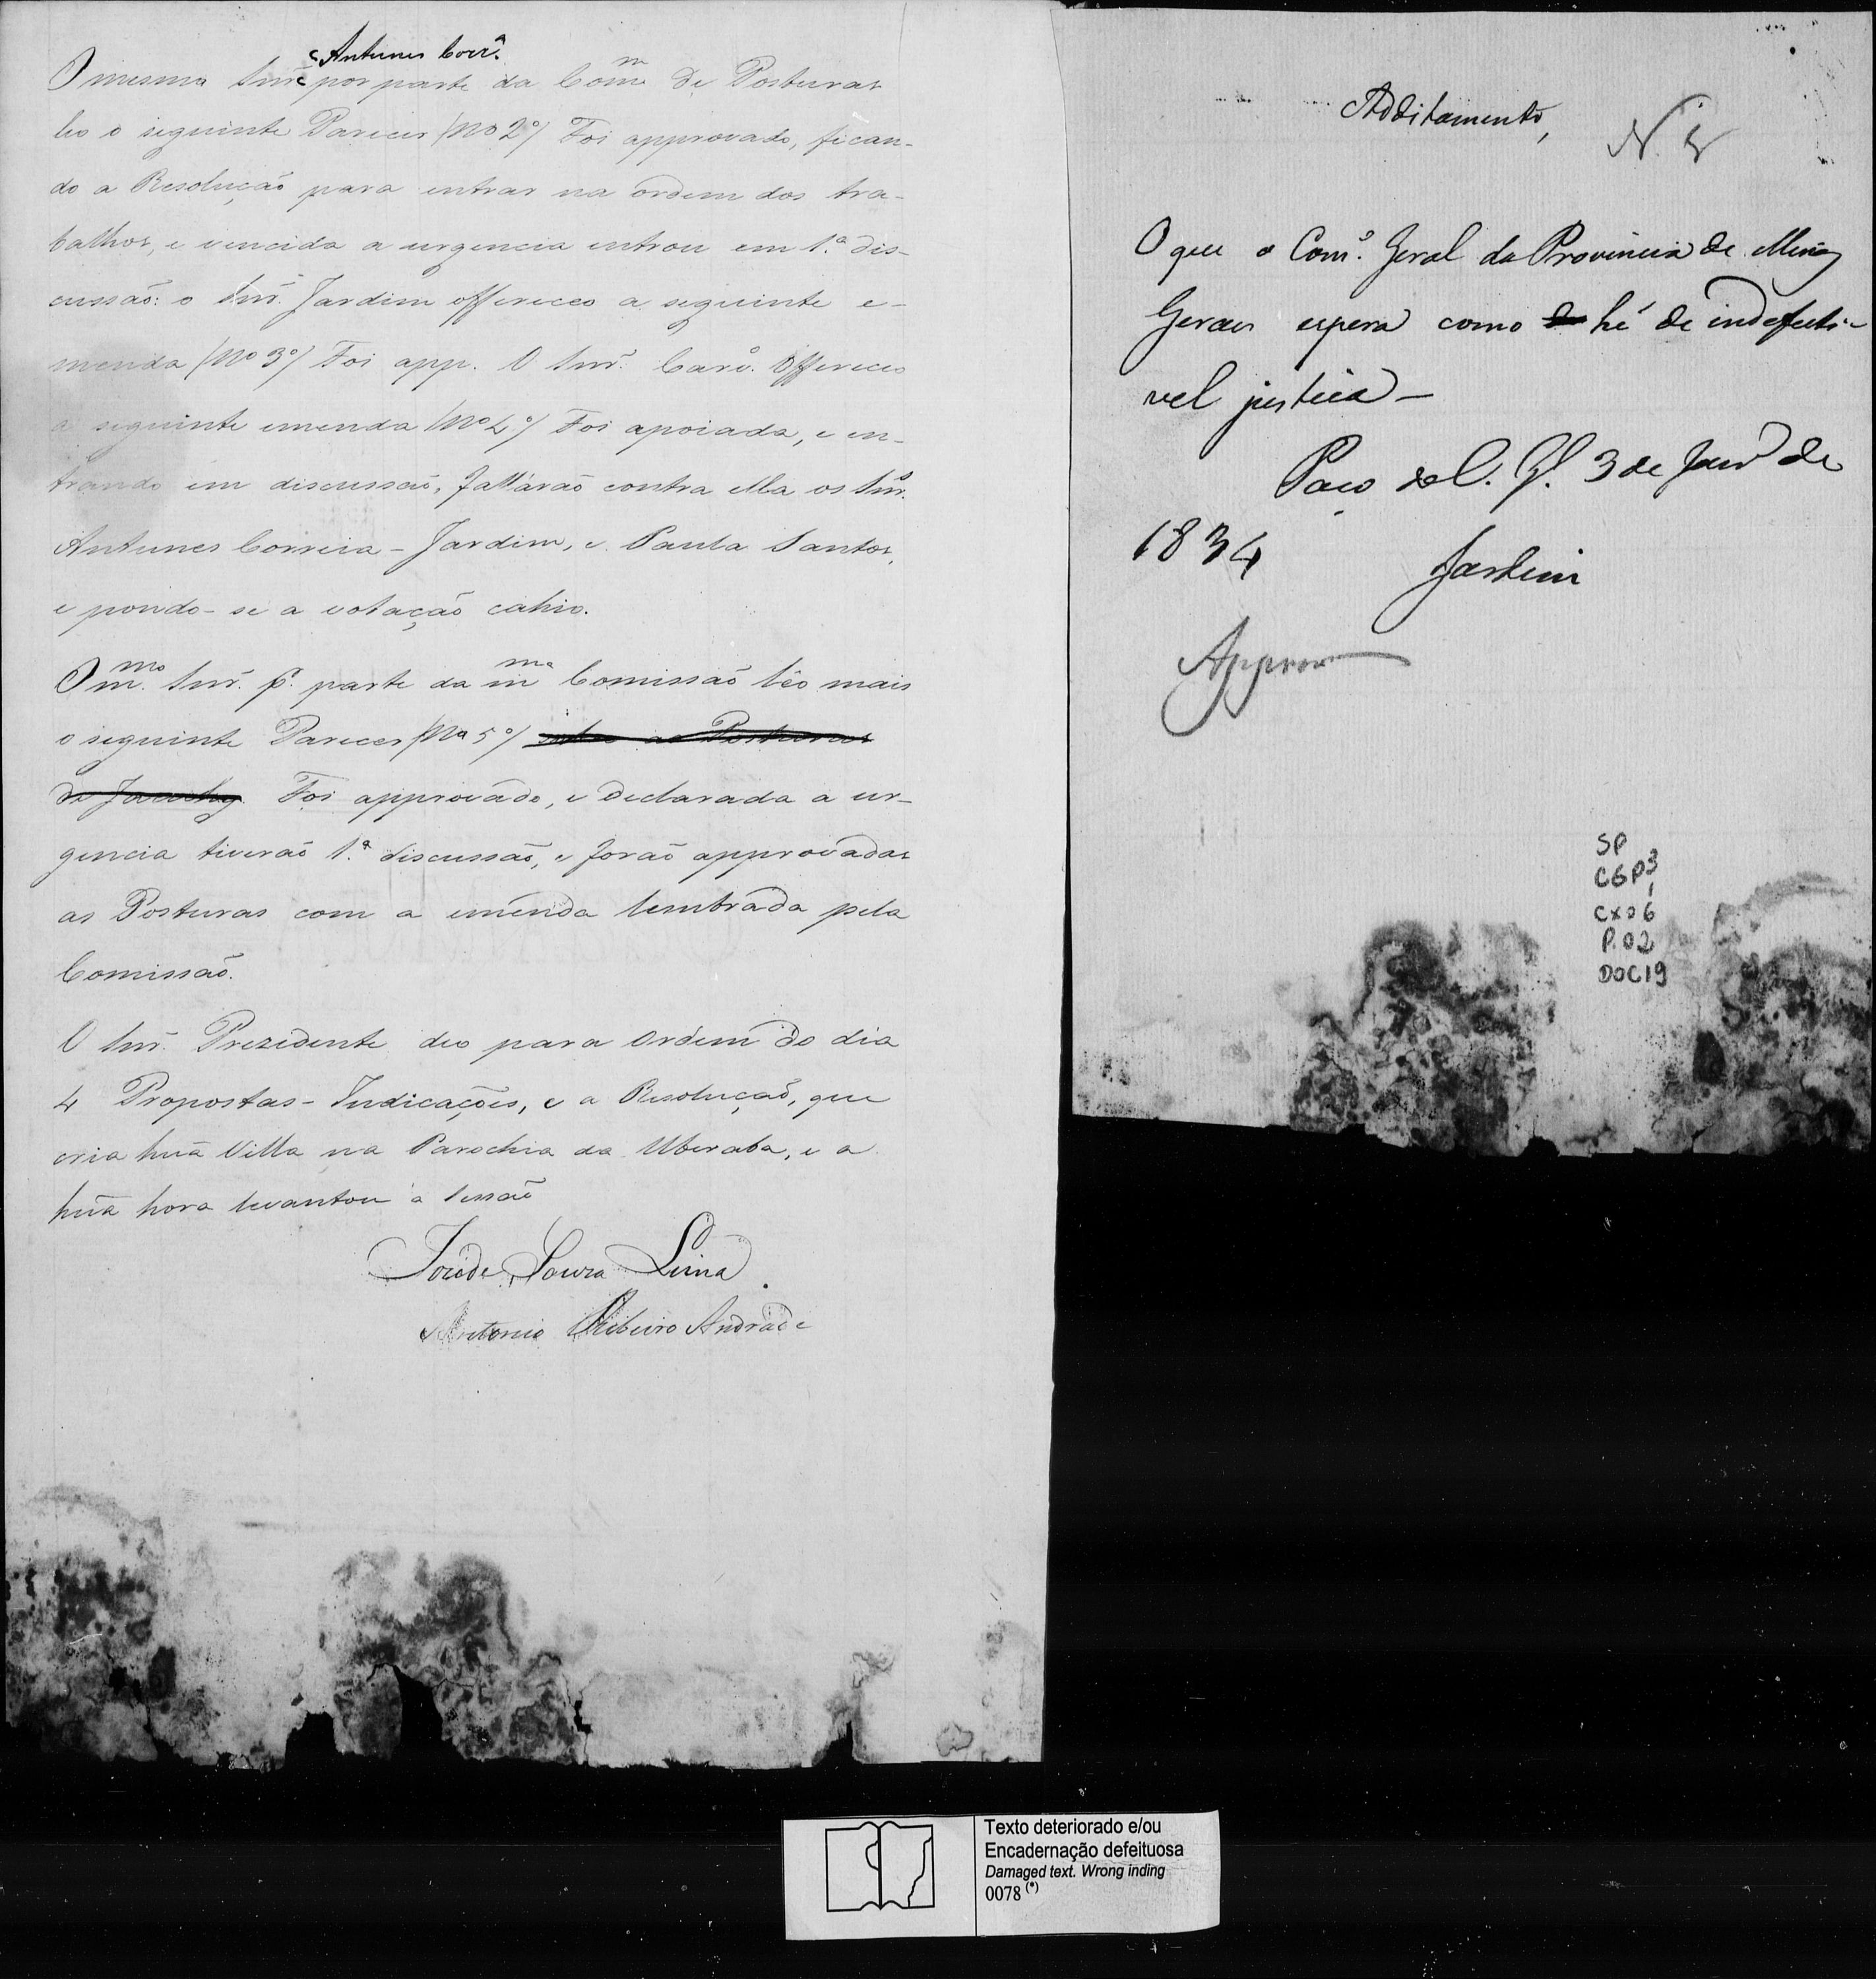 Antunes Corr.ª
O mesmo Snr. por parte da Com.m de Posturas
leo o seguinte Parecer (Nº 2º) Foi approvado, fican-
do a Resolução para entrar na ordem dos tra-
balhos, e vencida a urgencia entrou em 1.ª dis-
cussão: o Snr. Jardim offereceo a seguinte e-
menda (Nº 3º) Foi app. O Snr. Carv.º Offereceo
a seguinte emenda (Nº 4º) Foi apoiada, e en-
trando em discussão, fallárão contra ella os Snr.s
Antunes Correia - Jardim, e Paula Santos,
e pondo-se a votação cahio.
O m.mo Snr. p.r parte da m.ma Comissão lêo mais
o seguinte Parecer (Nº 5º) sobre as Posturas
de Foi approvado, e declarada a ur-
gencia tiverão 1.ª discussão, e forão approvadas
as Posturas com a emenda lembrada pela
Comissão.
O Snr. Prezidente deo para ordem do dia
4 Propostas - Indicações, e a Resolução, que
cria huã Villa na Parochia da Uberaba, e a
huã hora levantou a sessão
José de Souza Lima
Antonio Ribeiro Andrade
Additamento,
N.
O que o Cons.º Geral da Provincia de Minas
Geraes espera como hé de indefecti-
vel justiça -
Paço do C. G. 3 de Janr.º de
1834 Jardim
Approv
SP
CGP3,
CX06
P.02
DOC19
Texto deteriorado e/ou
Encadernação defeituosa
Damaged text. Wrong inding
0078 (*)